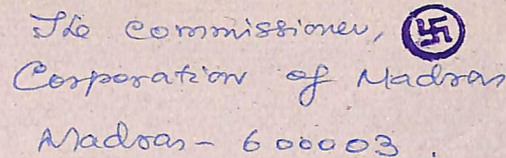 The commissioner,
Corporation of Madras
Madras - 600003.